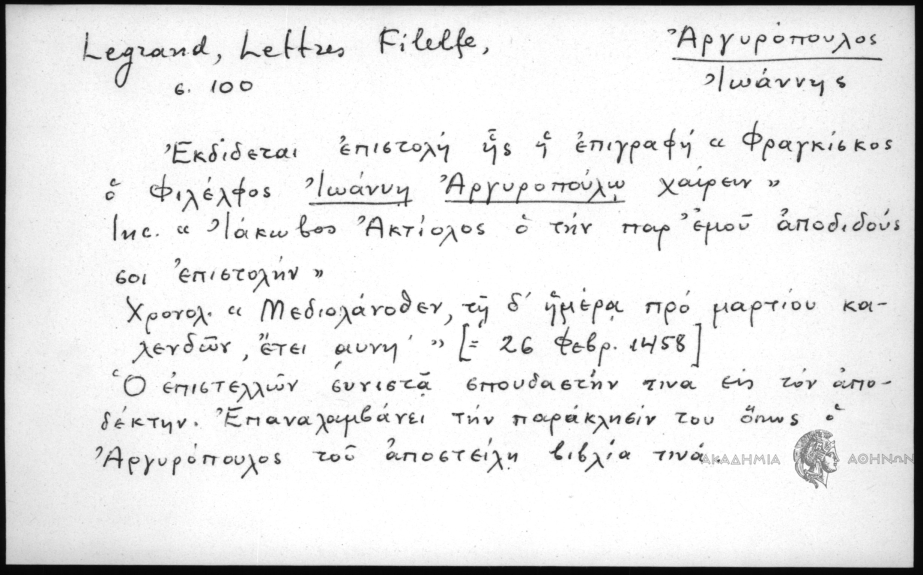 Legrand, Lettres Filelfe,
σ. 100
Ἀργυρόπουλος
Ἰωάννης
Ἐκδίδεται ἐπιστολή ἧς ἡ ἐπιγραφή « Φραγκίσκος
ὁ Φιλέλφος Ἰωάννῃ Ἀργυροπούλῳ χαίρειν »
Inc. « Ἰάκωβος Ἀκτίολος ὁ τήν παρ' ἐμοῦ ἀποδιδούς
σοι ἐπιστολήν »
Χρονολ. « Μεδιολάνοθεν, τῇ δ' ἡμέρᾳ πρό μαρτίου κα-
λενδῶν, ἔτει αυνη' » [= 26 Φεβρ. 1458]
Ὁ ἐπιστέλλων συνιστᾷ σπουδαστήν τινα εἰς τόν ἀπο-
δέκτην. Ἐπαναλαμβάνει τήν παράκλησίν του ὅπως ὁ
Ἀργυρόπουλος τοῦ ἀποστείλῃ βιβλία τινά.
ΑΚΑΔΗΜΙΑ ΑΘΗΝΩΝ